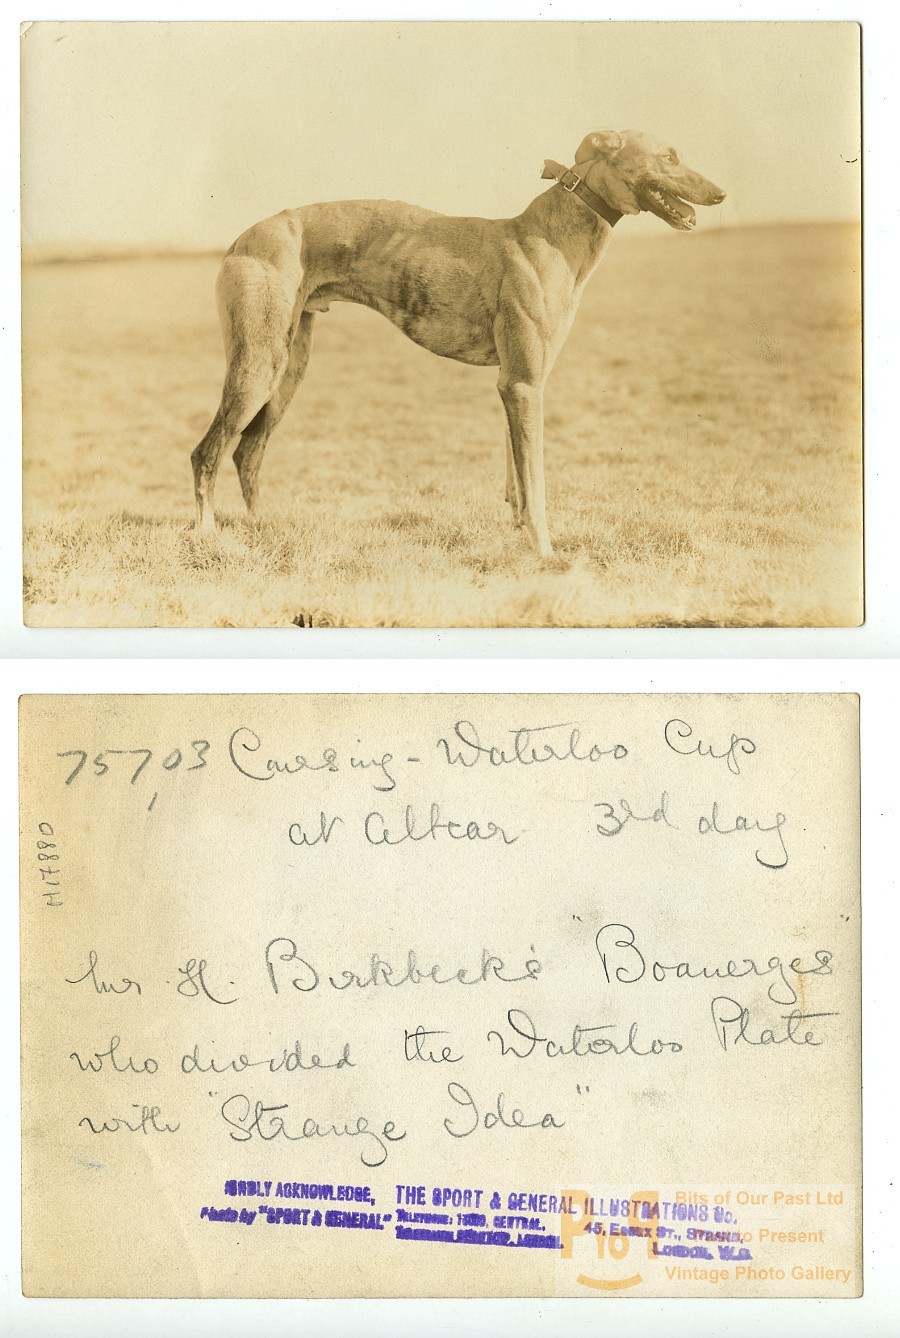 75703 Coursing - Waterloo Cup
at Altcar 3rd day
H17880
Mr. H. Birkbeck's "Boanerges"
who divided the Waterloo Plate
with "Strange Idea"
KINDLY ACKNOWLEDGE,
Photo by "SPORT & GENERAL"
THE SPORT & GENERAL ILLUSTRATIONS Co.
45, Essex St., Strand,
London, W.C.
Bits of Our Past Ltd
PtoP
to Present
Vintage Photo Gallery